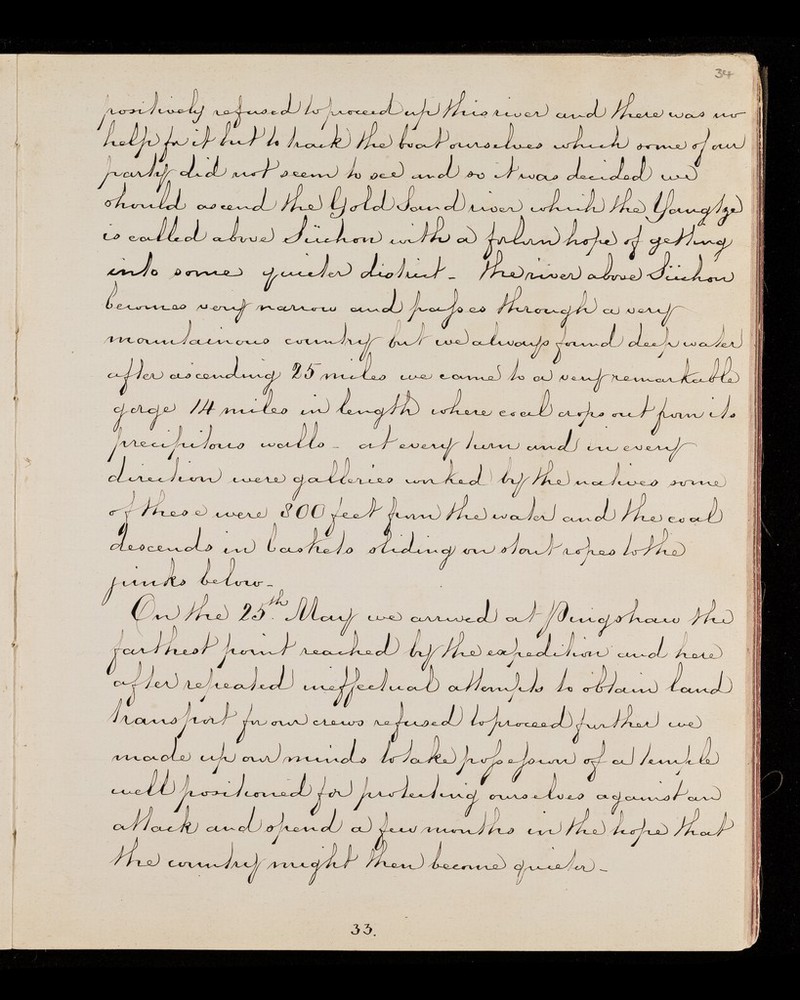 34
positively refused to proceed up this river and there was no
help for it but to track the boat ourselves which some of our
party did not seem to see and so it was decided we
should ascend the Gold Sand river which the Yangtze
is called above Süchow with a forlorn hope of getting
into some quieter district - the river above Süchow
becomes very narrow and passes through a very
mountainous country but we always found deep water
after ascending 25 miles we came to a very remarkable
gorge 14 miles in length where coal crops out from its
precipitous walls - at every turn and in every
direction were galleries worked by the natives some
of these were 800 feet from the water and the coal
descends in baskets sliding on stout ropes to the
junks below -
On the 25th. May we arrived at Pingshaw the
farthest point reached by the expedition and here
after repeated ineffectual attempts to obtain land
transport for our crews refused to proceed further we
made up our minds to take possession of a temple
well positioned for protecting ourselves against an
attack and spend a few months in the hope that
the country might then become quieter -
33.